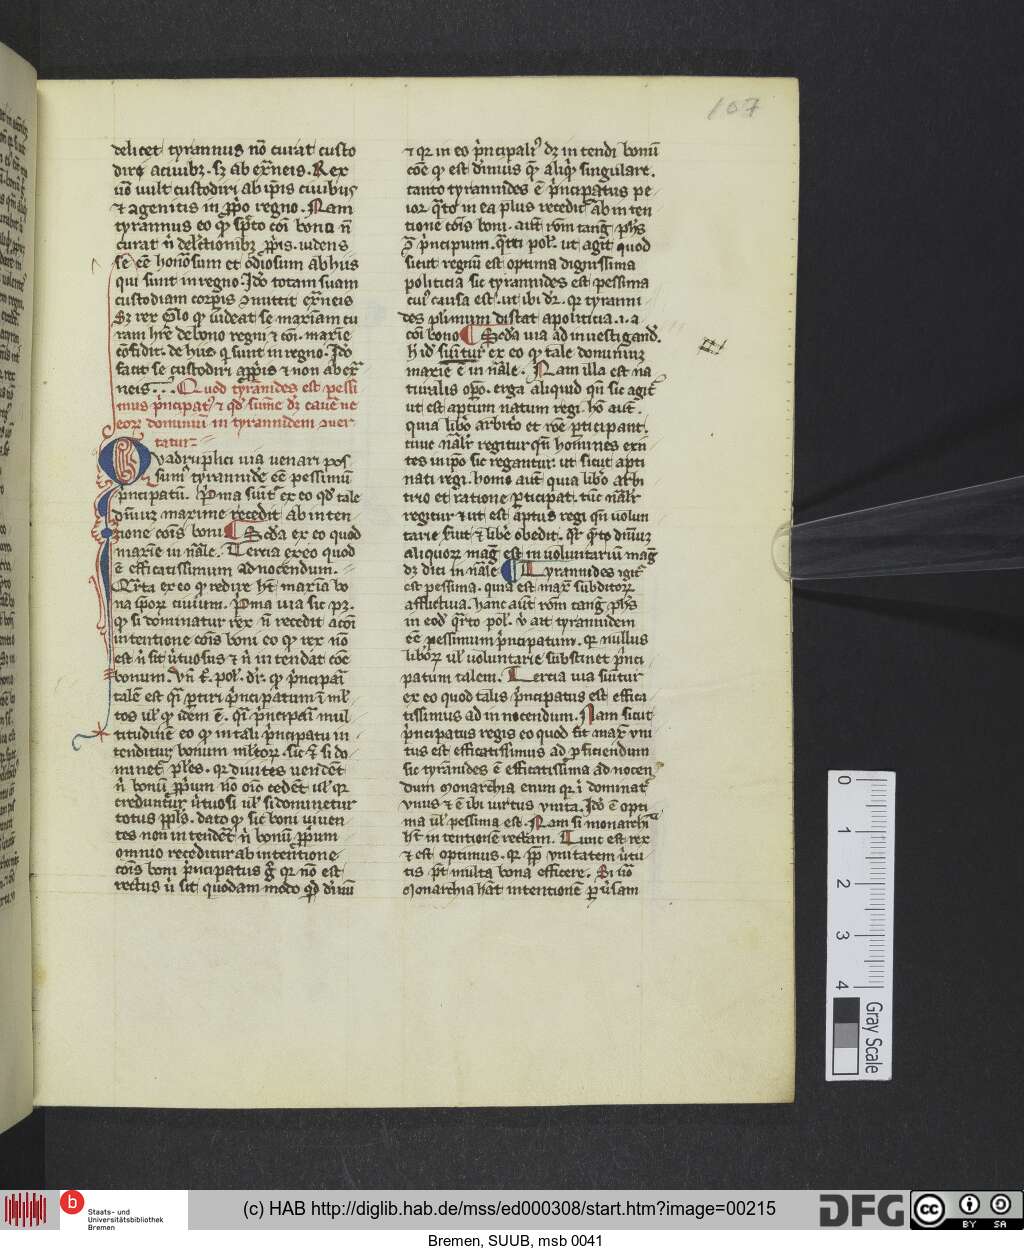 107
delicet tyrannus nō curat custo
dire a ciuibꝫ. sꝫ ab ex̄neis. Rex
uō uult custodiri ab ip̄is ciuibus
⁊ a genitis in ꝓp̄o regno. Nam
tyrannus eo qꝫ sp̄to cōi bono n̄
curat n̄ delc̄tionibꝫ ꝓp̄is. uidens
se ēē honōsum et odiosum ab his
qui sunt in regno. Ido totam suam
custodiam corp̄is ꝯmittit ex̄neis
Sꝫ rex
ram hr̄e de bono regni ⁊ cōi. maxīe
cōfidit de his q̄ sunt in regno. Ido
facit se custodiri a ꝓp̄iis ⁊ non ab ex̄
neis. Quod tyrānides est pessi
mus p̄ncipatꝰ ⁊ qd̓ sūme dꝫ cauē ne
eoꝝ dominiū in tyrannidem ꝯuer
tatur
Quadruplici uia uenari pos
sumꝰ tyrannidē ēē pessimū
p̄ncipatū. Pͥma sūit ex eo qd̓ tale
dn̄iuꝫ maxime recedit ab inten
tione cōis boni ¶ Scd̓a ex eo quod
maxīe in nāle. Tercia ex eo quod
ē efficatissimum ad nocendum.
Qr̄ta ex eo qꝫ h̄t maxīa bo
na ip̄oꝝ ciuium. Pͥma uia sic pꝫ.
qꝫ si dominatur rex n̄ recedit a cōi
intentione cōis boni eo qꝫ rex nō
est n̄ sit ūtuosus ⁊ n̄ intendat cōe
bonum. Vn̄ polꝭ. dr̄. qꝫ p̄ncipari
talē est q̄i ꝑtiri p̄ncipatum ī ml̄
tos ul̓ qꝫ idem ē. q̄i p̄ncipari mul
titudinē eo qꝫ in tali p̄ncipatu in
tenditur bonum ml̄toꝝ. sic ⁊ si do
minet pl̄es. qꝛ diuites
n̄ bonū ꝓp̄um
creduntur ūtuosi ul̓ si dominetur
totus ppl̄s. dato qꝫ sic boni uiuen
tes non intendēt n̄ bonū ꝓp̄um
omnio receditur ab intentione
cōis boni p̄ncipatus g̊ qꝛ nō est
rectus ū sit quodam modo qd̓ diuiū
⁊ qꝛ in eo p̄ncipaliꝰ dꝫ intendi bonū
cōe qꝫ est diuinius qꝫ aliqd̓ singulare.
tanto tyrannides ē p̄ncipatus pe
ior qͣto in ea plus recedit ab inten
tione cōis boni. aūt rōm tang̅ ph̄s
p̄ncipum. qͣrti polꝭ. ut ait quod
sicut regnū est optima dignissima
politicia sic tyrannides est pessima
cuiꝰ causa est. ut ibi dr̄. qꝛ tyranni
des plurimum distat a politicia. i. a
cōi bono ¶ Scd̓a uia ad inuestigand̓.
h̓ id̓ sūitur ex eo qꝫ tale dominiuꝫ
maxīe ē in nāle. Nam illa est na
turalis opō. erga aliquid qn̄ sic agitͥ
ut est aptum natum regi. hō aūt.
quia libō arbit̄o et rōe ꝑticipant.
tunc nālr̄ regitur qn̄ homines exn̄
tes in ip̄o sic regantur. ut sicut apti
nati regi. homo aūt quia libō arbi
trio et ratione ꝑticipat. tūc nālr̄
regitur ⁊ ut est aptus regi qn̄ uolun
tarie ẜuit ⁊ libē obedit. qꝛ qͣto dn̄iuꝫ
aliquoꝝ mag̅ est in uoluntariū mag̅
dꝫ dici in nāle ¶ Tyrannides igitͥ
est pessima. quia est maxͥ subditoꝝ
afflictiua. hanc aūt rōm tang̅ ph̄s
in eod̓ qͣrto polꝭ. ū ait tyrannidem
ēē pessimum p̄ncipatum. qꝛ nullus
libōꝝ ul̓ uoluntarie substinet p̄nci
patum talem. Tercia uia sūitur
ex eo quod talis p̄ncipatus est effica
tissimus ad in nocendum. Nam sicut
p̄ncipatus regis eo quod sit maxͥ vni
tus est efficatissimus ad ꝓficiendum
sic tyrānides ē efficatissima ad nocen
dum Monarchia enim qꝛ ī dominatͥ
vnus ⁊ ē ibi uirtus vnita. Ido ē opti
ma ul̓ pessima est. Nam si monarchͥa
h̄t intentionē rectam. Tunc est rex
⁊ est optimus. qꝛ ꝓp̄ vnitatem ūtu
tis pt̄ multa bona efficere. Si uō
Monarchia hāt intentionē ꝑuersam
0
1
2
3
4
Gray Scale
b
Staats- und
Universitätsbibliothek
Bremen
(c) HAB http://diglib.hab.de/mss/ed000308/start.htm?image=00215
DFG
cc
BY SA
Bremen, SUUB, msb 0041